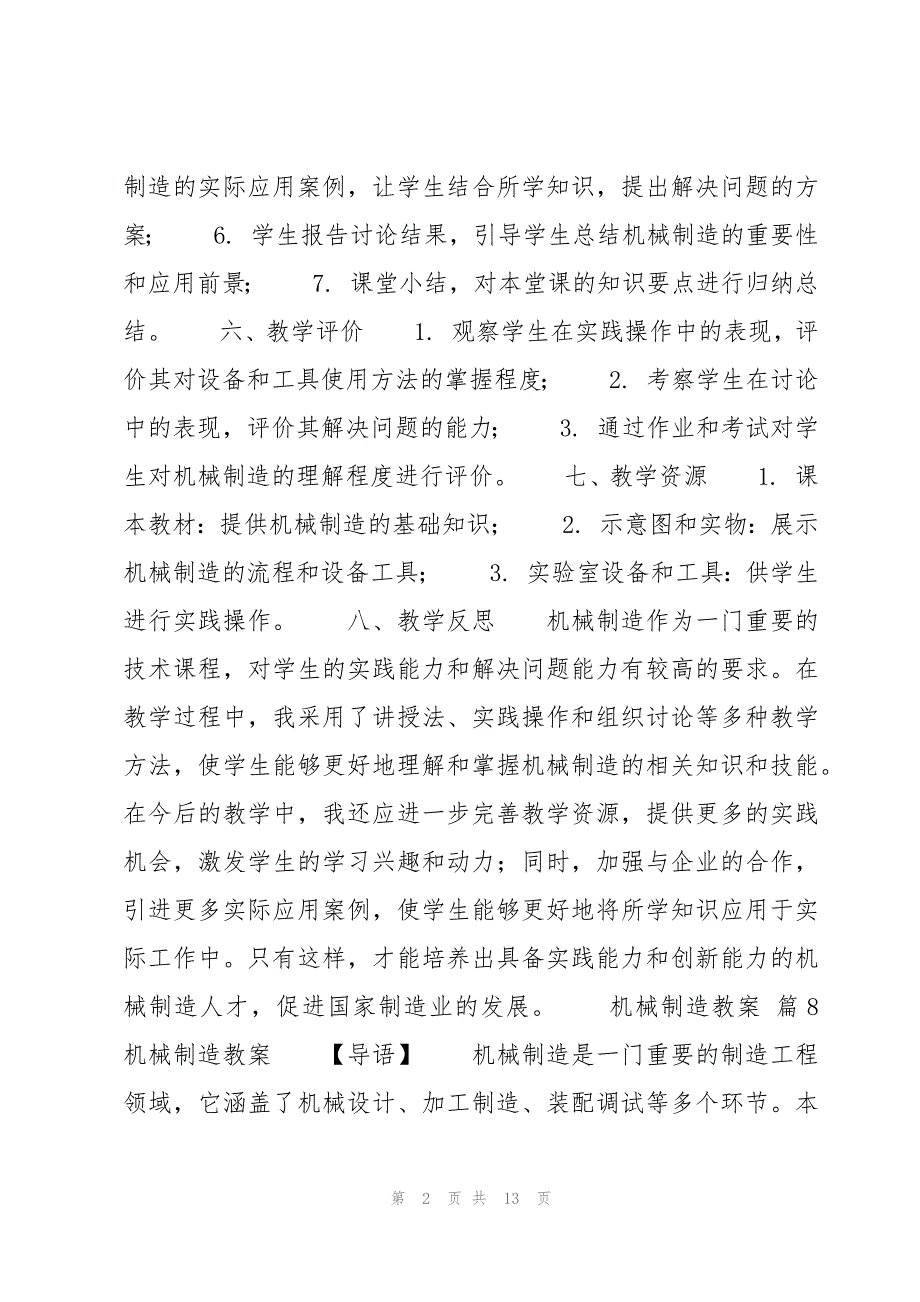 制造的实际应用案例，让学生结合所学知识，提出解决问题的方
案；　　6. 学生报告讨论结果，引导学生总结机械制造的重要性
和应用前景；　　7. 课堂小结，对本堂课的知识要点进行归纳总
结。　　六、教学评价　　1. 观察学生在实践操作中的表现，评
价其对设备和工具使用方法的掌握程度；　　2. 考察学生在讨论
中的表现，评价其解决问题的能力；　　3. 通过作业和考试对学
生对机械制造的理解程度进行评价。　　七、教学资源　　1. 课
本教材：提供机械制造的基础知识；　　2. 示意图和实物：展示
机械制造的流程和设备工具；　　3. 实验室设备和工具：供学生
进行实践操作。　　八、教学反思　　机械制造作为一门重要的
技术课程，对学生的实践能力和解决问题能力有较高的要求。在
教学过程中，我采用了讲授法、实践操作和组织讨论等多种教学
方法，使学生能够更好地理解和掌握机械制造的相关知识和技能。
在今后的教学中，我还应进一步完善教学资源，提供更多的实践
机会，激发学生的学习兴趣和动力；同时，加强与企业的合作，
引进更多实际应用案例，使学生能够更好地将所学知识应用于实
际工作中。只有这样，才能培养出具备实践能力和创新能力的机
械制造人才，促进国家制造业的发展。　　机械制造教案 篇8
机械制造教案　　【导语】　　机械制造是一门重要的制造工程
领域，它涵盖了机械设计、加工制造、装配调试等多个环节。本
第 2 页 共 13 页